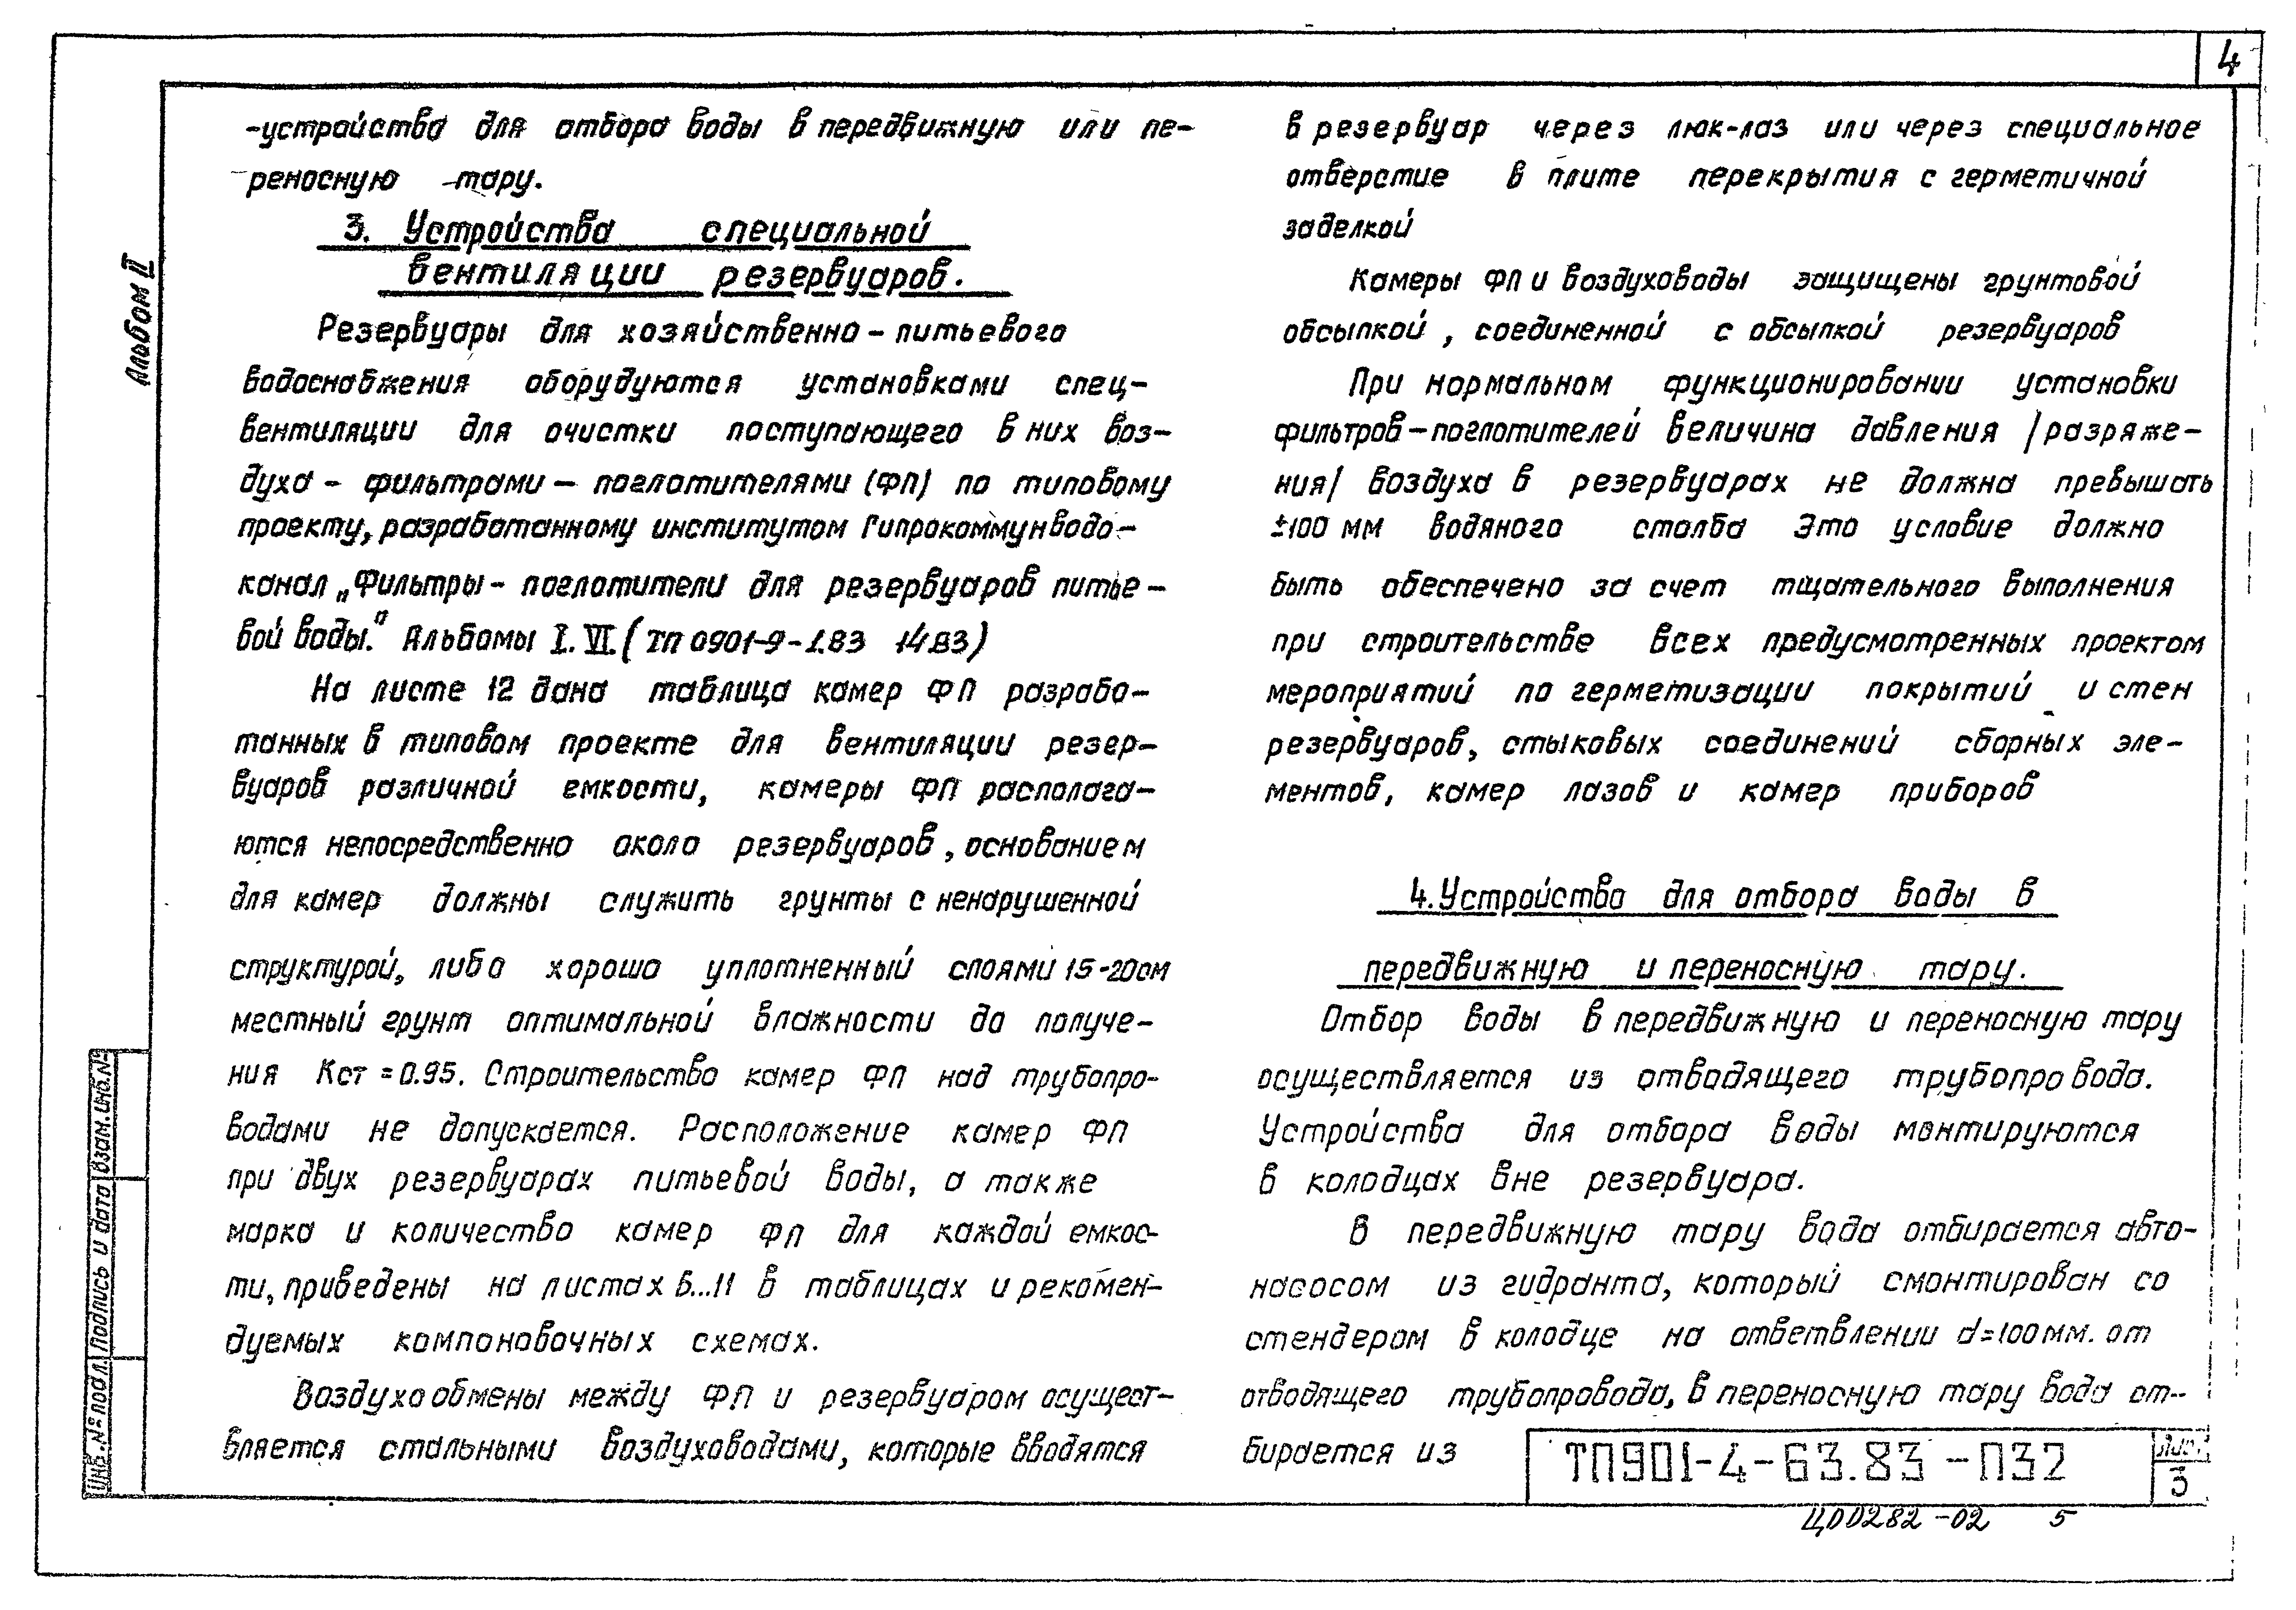 4
Альбом II
-устройства для отбора воды в передвижную или пе-
реносную тару.
3. Устройства специальной
вентиляции резервуаров.
Резервуары для хозяйственно-питьевого
водоснабжения оборудуются установками спец-
вентиляции для очистки поступающего в них воз-
духа - фильтрами - поглотителями (ФП) по типовому
проекту, разработанному институтом Гипрокоммунводо-
канал „Фильтры - поглотители для резервуаров питье-
вой воды." Альбомы I. VI. (ТП 0901-9-1.83 14.83)
На листе 12 дана таблица камер ФП разрабо-
танных в типовом проекте для вентиляции резер-
вуаров различной емкости, камеры ФП располага-
ются непосредственно около резервуаров, основанием
для камер должны служить грунты с ненарушенной
структурой, либо хорошо уплотненный слоями 15-20см
местный грунт оптимальной влажности до получе-
ния Кст = 0.95. Строительство камер ФП над трубопро-
водами не допускается. Расположение камер ФП
при двух резервуарах питьевой воды, а также
марка и количество камер ФП для каждой емкос-
ти, приведены на листах 6...11 в таблицах и рекомен-
дуемых компоновочных схемах.
Воздухообмены между ФП и резервуаром осущест-
вляется стальными воздуховодами, которые вводятся
в резервуар через люк-лаз или через специальное
отверстие в плите перекрытия с герметичной
заделкой
Камеры ФП и воздуховоды защищены грунтовой
обсыпкой, соединенной с обсыпкой резервуаров
При нормальном функционировании установки
фильтров-поглотителей величина давления /разряже-
ния/ воздуха в резервуарах не должна превышать
±100 мм водяного столба Это условие должно
быть обеспечено за счет тщательного выполнения
при строительстве всех предусмотренных проектом
мероприятий по герметизации покрытий и стен
резервуаров, стыковых соединений сборных эле-
ментов, камер лазов и камер приборов
4. Устройства для отбора воды в
передвижную и переносную тару.
Отбор воды в передвижную и переносную тару
осуществляется из отводящего трубопровода.
Устройства для отбора воды монтируются
в колодцах вне резервуара.
В передвижную тару вода отбирается авто-
насосом из гидранта, который смонтирован со
стендером в колодце на ответвлении d=100мм. от
отводящего трубопровода, в переносную тару вода от-
бирается из
Инв.№ подл. Подпись и дата Взам.инв.№
ТП901-4-63.83-ПЗ2
Лист
3
Ц00282-02 5